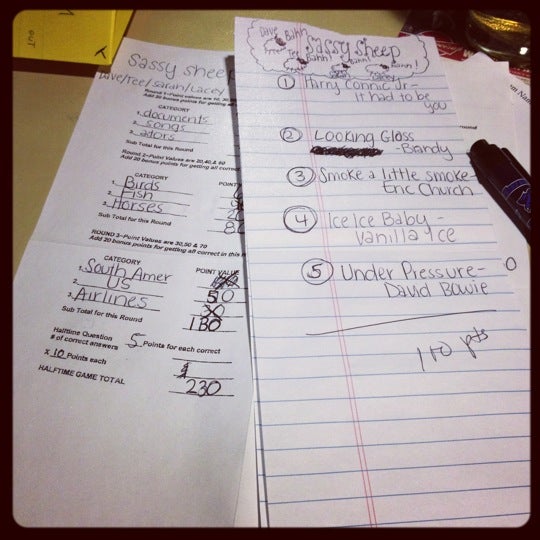 OUT
Sassy sheep
Dave/Tee/Sarah/Lacey
Round 1–Point Values are 10, 30
Add 20 bonus points for getting all
CATEGORY
1. documents
2. songs
3. ators
Sub Total for this Round
Round 2–Point Values are 20,40,& 60
Add 20 bonus points for getting all correct
CATEGORY
POINT
1. Birds
2. Fish
3. Horses
Sub Total for this Round
ROUND 3–Point Values are 30,50 & 70
Add 20 bonus points for getting all correct in this R
CATEGORY
POINT VALUE
1. South Amer
2. US
3. Airlines
Sub Total for this Round
130
Halftime Question
# of correct answers
5 Points for each correct
x 10 Points each
HALFTIME GAME TOTAL
230
Dave
Bahh
Tee
Sassy sheep
Bahh!
Bahh!
Bahh!
① Harry Connic Jr-
it had to be
you
② Looking Glass
-Brandy
③ Smoke a little smoke-
Eric Church
④ Ice Ice Baby -
Vanilla Ice
⑤ Under Pressure-
David Bowie
110 pts